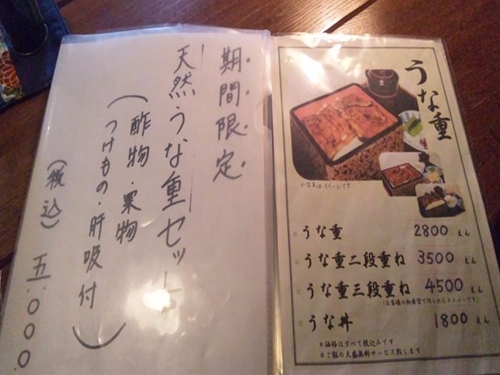 期間限定
天然うな重セット
(酢物・果物
つけもの・肝吸付)
(税込) 五.〇〇〇
うな重
うな重 2800 えん
うな重二段重ね 3500 えん
うな重三段重ね 4500 えん
うな丼 1800 えん
※価格はすべて税込みです
※ご飯の大盛無料サービス致します